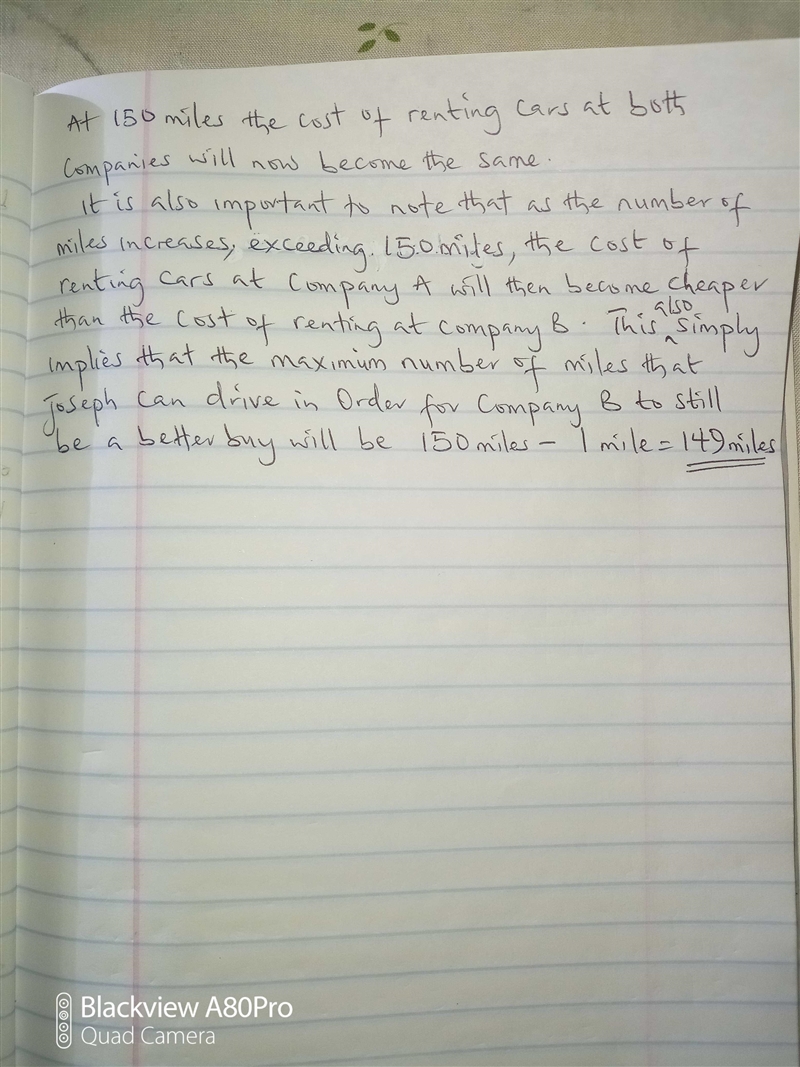 At 150 miles the cost of renting cars at both
Companies will now become the same.
It is also important to note that as the number of
miles increases, exceeding 150 miles, the cost of
renting cars at Company A will then become cheaper
than the cost of renting at company B. This also simply
implies that the maximum number of miles that
Joseph can drive in order for Company B to still
be a better buy will be 150 miles - 1 mile = 149 miles
Blackview A80Pro
Quad Camera